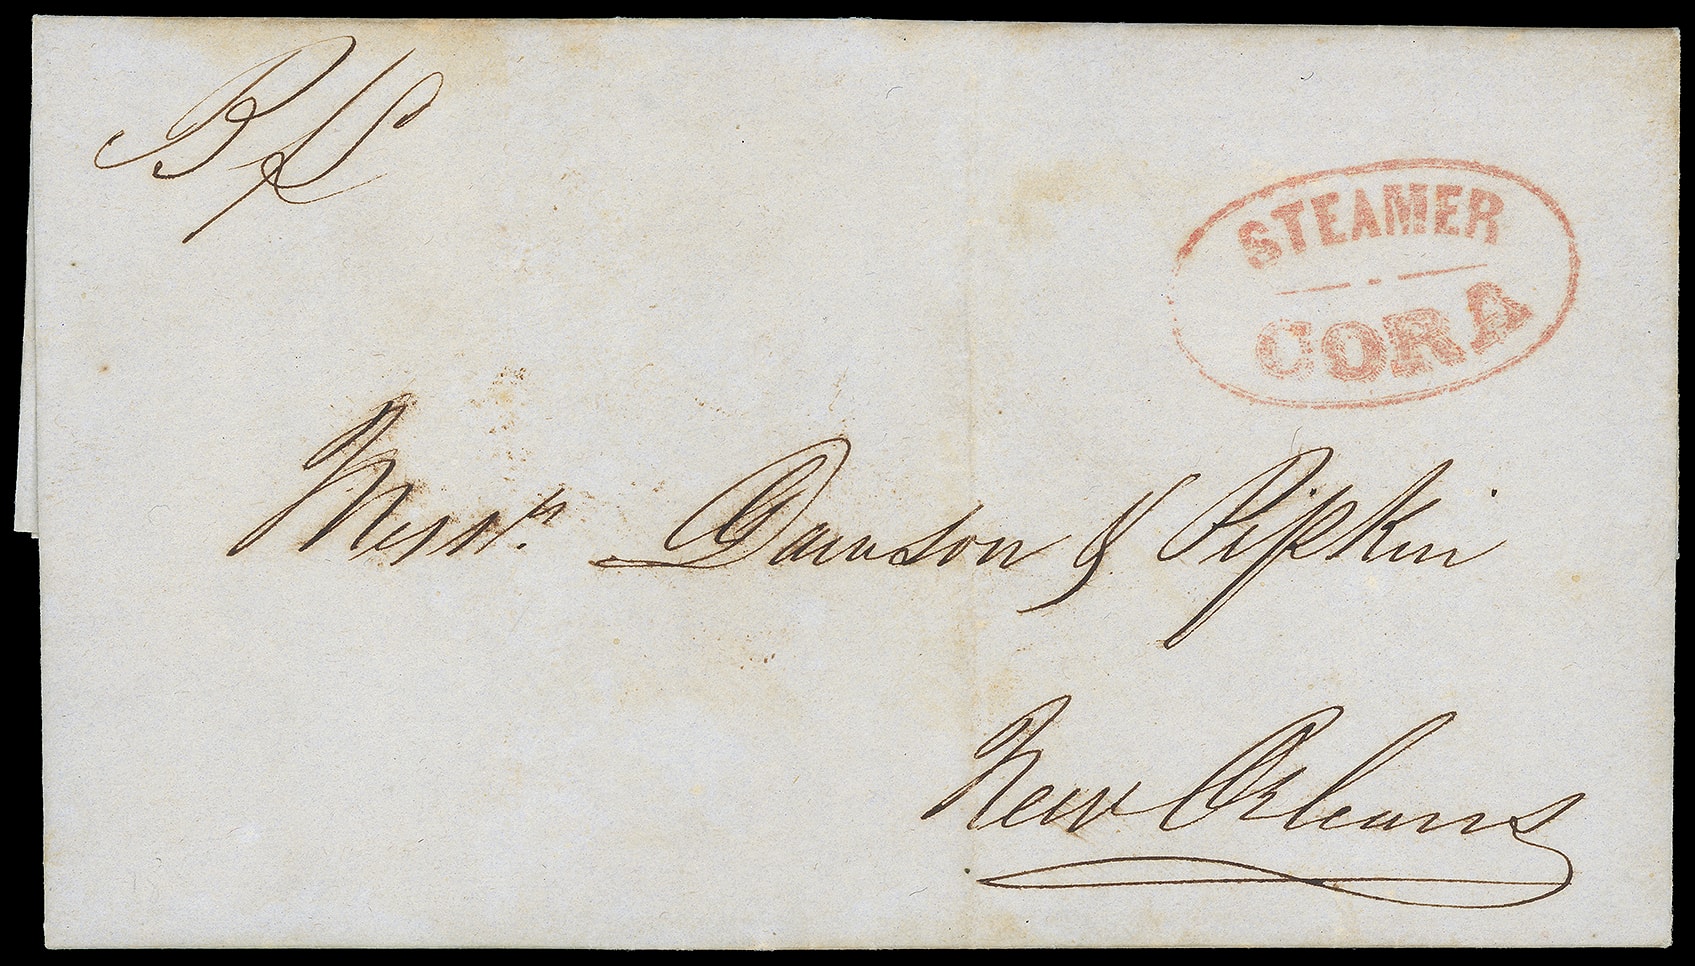 B/L
STEAMER
CORA
Messrs. Dawson & Pipkin
New Orleans